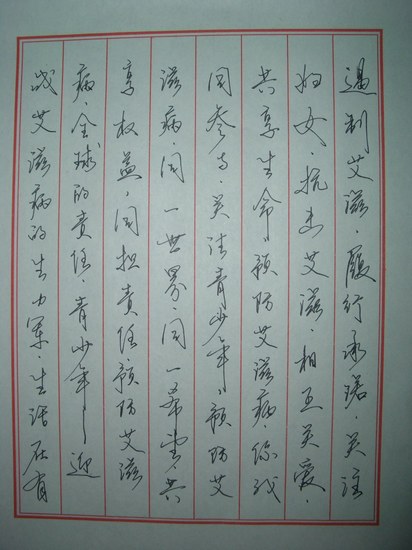 遏制艾滋·履行承诺·关注
妇女·抗击艾滋·相互关爱·
共享生命·预防艾滋病你我
同参与·关注青少年·预防艾
滋病·同一世界·同一希望·共
享权益·同担责任·预防艾滋
病·全球的责任·青少年—迎
战艾滋病的生力军·生活在有